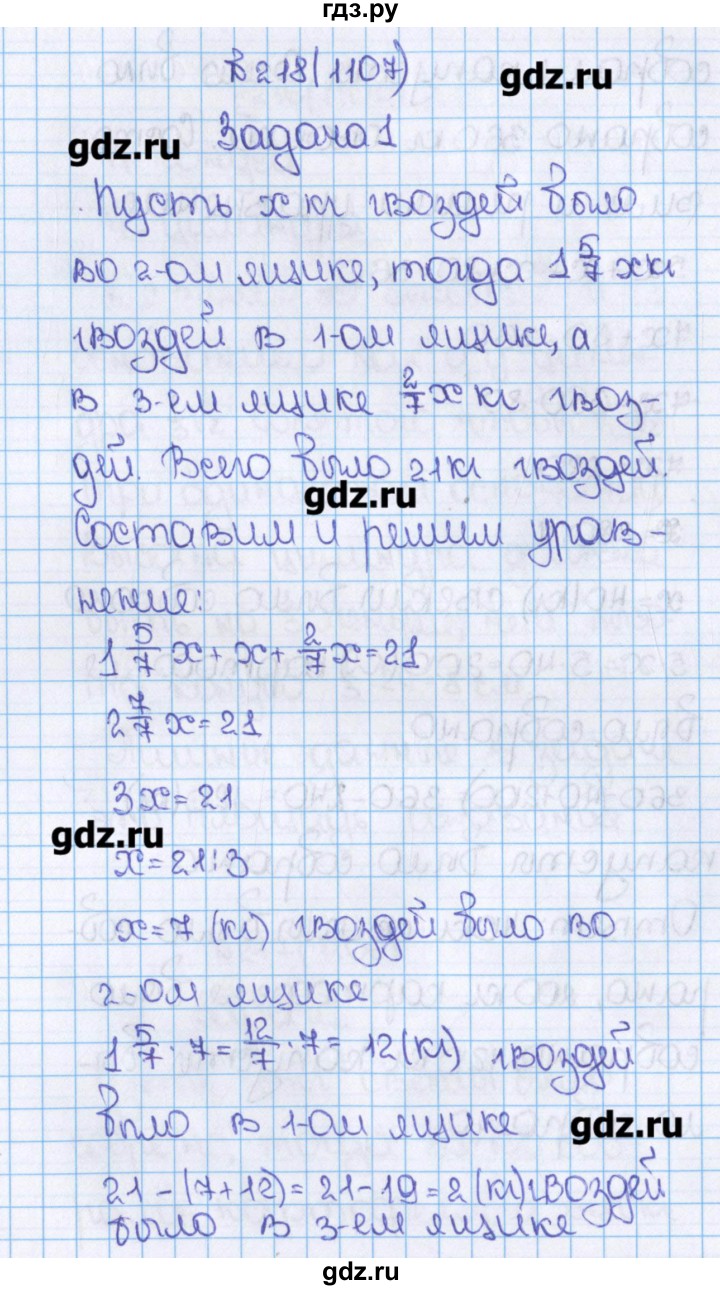 гдз.ру
№218(1107)
gdz.ru
gdz.ru
Задача 1
Пусть x кг гвоздей было
во 2-ом ящике, тогда 1 5/7 x кг
гвоздей в 1-ом ящике, а
в 3-ем ящике 2/7 x кг гвоз-
дей. Всего было 21 кг гвоздей.
gdz.ru
Составим и решим урав-
нение:
1 5/7 x + x + 2/7 x = 21
2 7/7 x = 21
3x = 21
gdz.ru
x = 21:3
x = 7 (кг) гвоздей было во
2-ом ящике
1 5/7 · 7 = 12/7 · 7 = 12 (кг) гвоздей
было в 1-ом ящике
gdz.ru
21 - (7+12) = 21 - 19 = 2 (кг) гвоздей
было в 3-ем ящике
gdz.ru